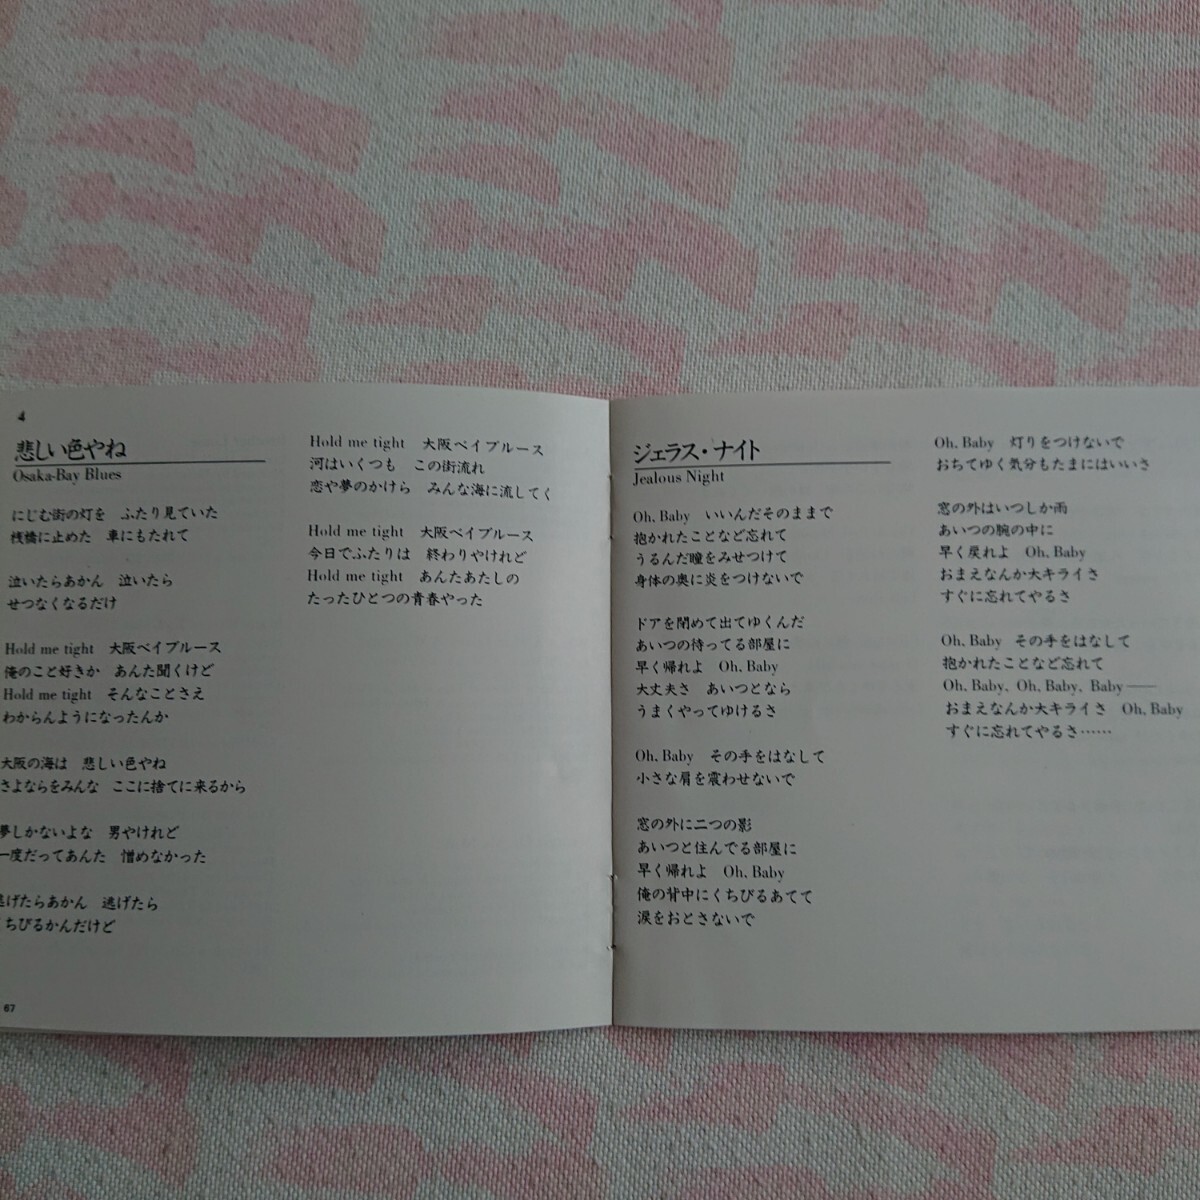 4
悲しい色やね
Osaka-Bay Blues
にじむ街の灯を　ふたり見ていた
桟橋に止めた　車にもたれて
泣いたらあかん　泣いたら
せつなくなるだけ
Hold me tight　大阪ベイブルース
俺のこと好きか　あんた聞くけど
Hold me tight　そんなことさえ
わからんようになったんか
大阪の海は　悲しい色やね
さよならをみんな　ここに捨てに来るから
夢しかないよな　男やけれど
一度だってあんた　憎めなかった
逃げたらあかん　逃げたら
くちびるかんだけど
67
Hold me tight　大阪ベイブルース
河はいくつも　この街流れ
恋や夢のかけら　みんな海に流してく
Hold me tight　大阪ベイブルース
今日でふたりは　終わりやけれど
Hold me tight　あんたあたしの
たったひとつの青春やった
ジェラス・ナイト
Jealous Night
Oh, Baby　いいんだそのままで
抱かれたことなど忘れて
うるんだ瞳をみせつけて
身体の奥に炎をつけないで
ドアを閉めて出てゆくんだ
あいつの待ってる部屋に
早く帰れよ　Oh, Baby
大丈夫さ　あいつとなら
うまくやってゆけるさ
Oh, Baby　その手をはなして
小さな肩を震わせないで
窓の外に二つの影
あいつと住んでる部屋に
早く帰れよ　Oh, Baby
俺の背中にくちびるあてて
涙をおとさないで
Oh, Baby　灯りをつけないで
おちてゆく気分もたまにはいいさ
窓の外はいつしか雨
あいつの腕の中に
早く戻れよ　Oh, Baby
おまえなんか大キライさ
すぐに忘れてやるさ
Oh, Baby　その手をはなして
抱かれたことなど忘れて
Oh, Baby、Oh, Baby、Baby——
おまえなんか大キライさ　Oh, Baby
すぐに忘れてやるさ……